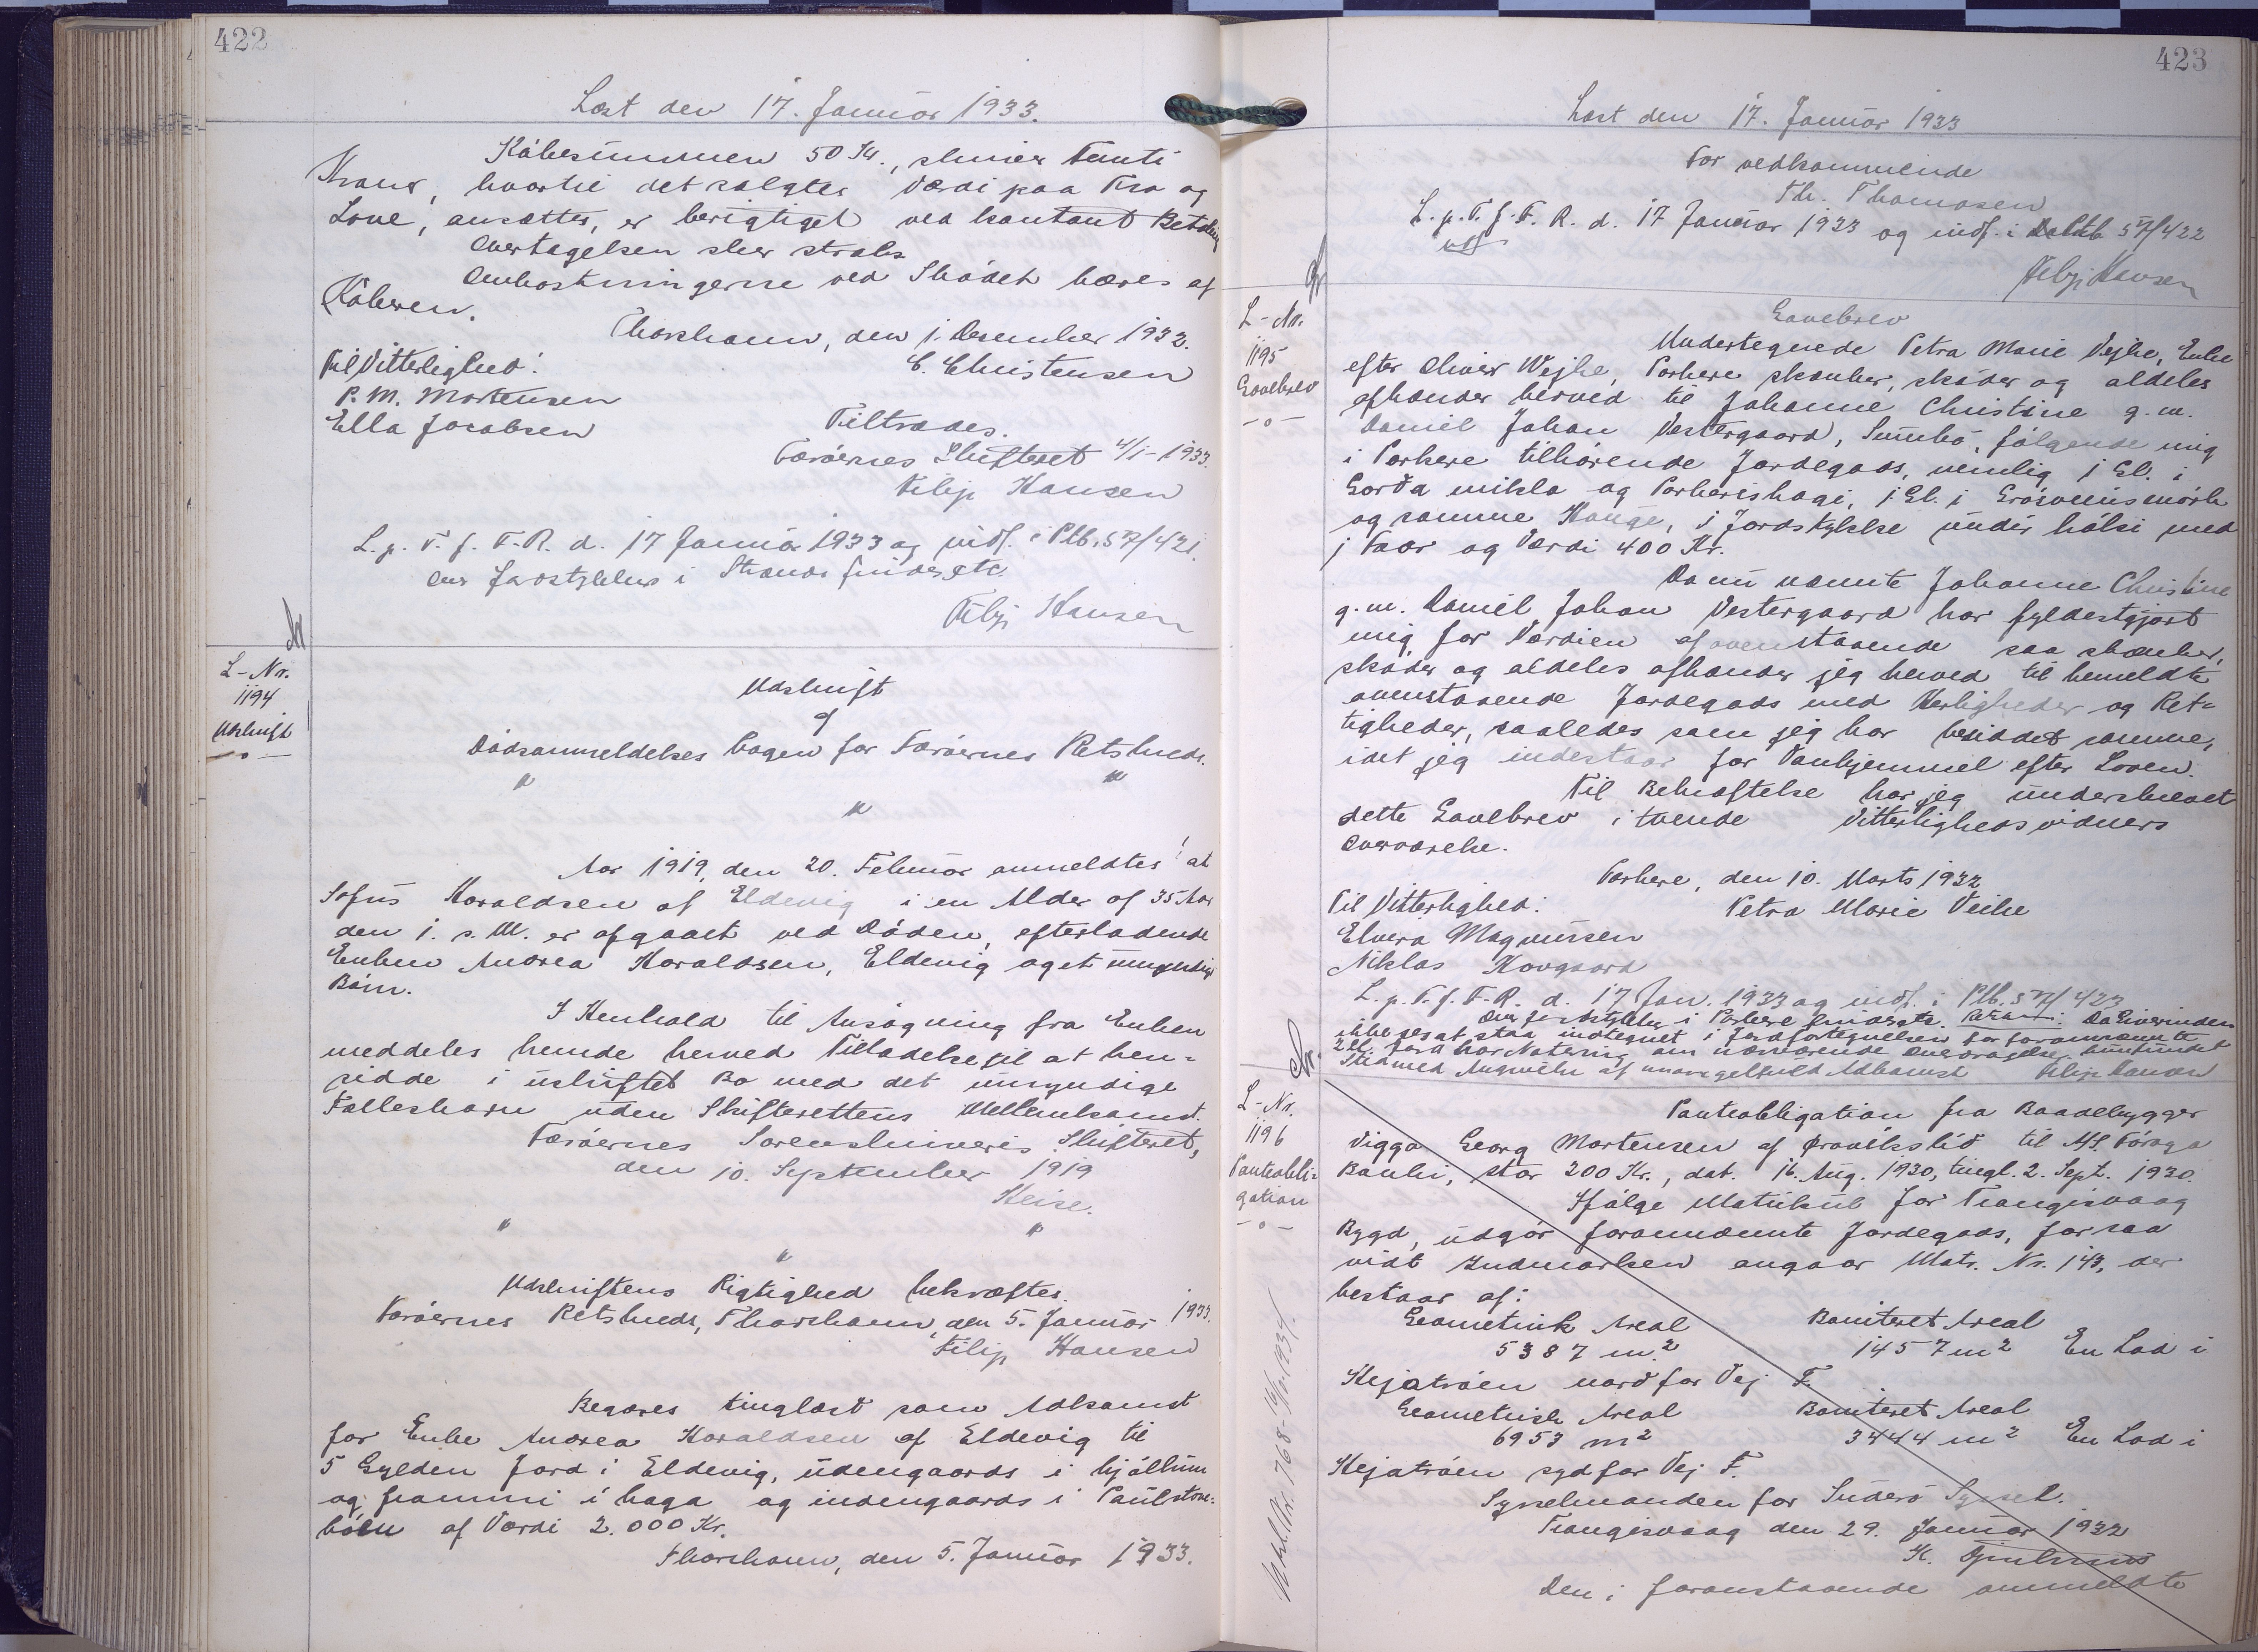 422
Læst den 17. Januar 1933.
Købesummen 50 Kr., skriver Femti
Kroner, hvortil det solgtes Værdi paa Tro og
Love, ansættes, er berigtiget ved kontant Betaling
Overtagelsen sker straks.
Omkostningerne ved Skødet bæres af
Køberen.
Thorshavn, den 1. Desember 1932.
Til Vitterlighed: C. Christensen
P. M. Mortensen
Ella Jacobsen
Tiltrædes.
Færøernes Skifteret 4/1-1933.
Filip Hansen
L. p. T. f. F.R. d. 17 Januar 1933 og indf. i Ptb. 57/421.
Filip Hansen
L-Nr.
1194
Udskrift
-o-
Udskrift
af
Dødsanmeldelses bogen for Færøernes Retskreds.
" "
"
Aar 1919, den 20. Februar anmeldtes! at
Sofus Haraldsen af Eldevig i en Alder af 35 Aar
den 1. s. M. er afgaaet ved Døden, efterladende
Enken Andrea Haraldsen, Eldevig og et umyndigt
Barn.
I Henhold til Ansøgning fra Enken
meddeles hende herved Tilladelse til at hen-
sidde i uskiftet Bo med det umyndige
Fællesbarn uden Skifterettens Mellemkomst.
Færøernes Sorenskriveris Skifteret,
den 10. September 1919
Heise.
" "
"
Udskriftens Rigtighed bekræftes.
Færøernes Retskreds, Thorshavn, den 5. Januar 1933.
Filip Hansen
Begæres tinglæst som Adkomst
for Enke Andrea Haraldsen af Eldevig til
5 Gylden Jord i Eldevig, udengaards i hjøllum
og frammi i haga og indengaards i Paulstove-
bøen af Værdi 2.000 Kr.
Thorshavn, den 5. Januar 1933.
423
Læst den 17. Januar 1933
For vedkommende
Th. Thomasen
L. p. T. f. F. R. d. 17 Januar 1933 og indf. i 57/422
Filip Hansen
L-Nr.
1195
Gavebrev
-o-
Gavebrev
Undertegnede Petra Marie Vejhe, Enke
efter Oliver Wejhe, Porkere skænker, skøder og aldeles
afhænder herved til Johanne Christine g.m.
Daniel Johan Vestergaard, Sumbø, følgende mig
i Porkere tilhørende Jordegods, nemlig 1 Gl. i
Gorða mikla og Porkerishagi, 1 Gl. i
og samme Hauge, 1 Jordstykke under hálsi med
1 Faar og Værdi 400 Kr.
Da nu nævnte Johanne Christine
g.m. Daniel Johan Vestergaard har fyldestgjort
mig for Værdien af ovenstaaende saa skænker,
skøder og aldeles afhænder jeg herved til bemeldte
ovenstaaende Jordegods med Herligheder og Ret-
tigheder, saaledes som jeg har besiddet samme,
idet jeg indestaar for Vanhjemmel efter Loven.
Til Bekræftelse har jeg underskrevet
dette Gavebrev i tvende Vitterlighedsvidners
Overværelse.
Porkere, den 10. Marts 1932
Til Vitterlighed: Petra Marie Veihe
Elvira Magnussen
Niklas Hovgaard
L. p. T. f. F.R. d. 17 Jan. 1933 og indf. i Ptb. 57/423
Da Giverinden
ikke ses at staa indtegnet i Jordfortegnelsen for forannævnte
Filip Hansen
L-Nr.
1196
Panteobli-
gation
-o-
Panteobligation fra Baadebygger
Viggo Georg Mortensen af Froðbøslíð til A/S. Føroya
Banki, stor 200 Kr., dat. 16. Aug. 1930, tingl. 2. Sept. 1930.
Ifølge Matrikul for Trangisvaag
Bygd, udgør forannævnte Jordegods, for saa
vidt Indmarken angaar Matr. Nr. 143, der
bestaar af:
Geometrisk Areal Boniteret Areal
5387 m² 1457 m² En Lod i
Hejatrøen nord for Vej F.
Geometrisk Areal Boniteret Areal
6953 m² 3444 m² En Lod i
Hejatrøen syd for Vej F.
Sysselmanden for Suderø Syssel.
Trangisvaag den 29. Januar 1932
Den i foranstaaende anmeldte